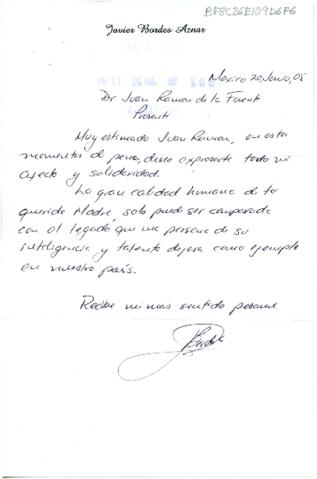 BF8C26E109D6F6
Javier Bordes Aznar
Mexico 20, Junio, 05
Dr Juan Ramon de la Fuente
Presente
Muy estimado Juan Ramon, en estos
momentos de pena, deseo expresarte todo mi
afecto y solidaridad.
La gran calidad humana de tu
querida Madre, solo puede ser comparada
con el legado que una persona de su
inteligencia y talento dejara como ejemplo
en nuestro país.
Recibe mi mas sentido pesame